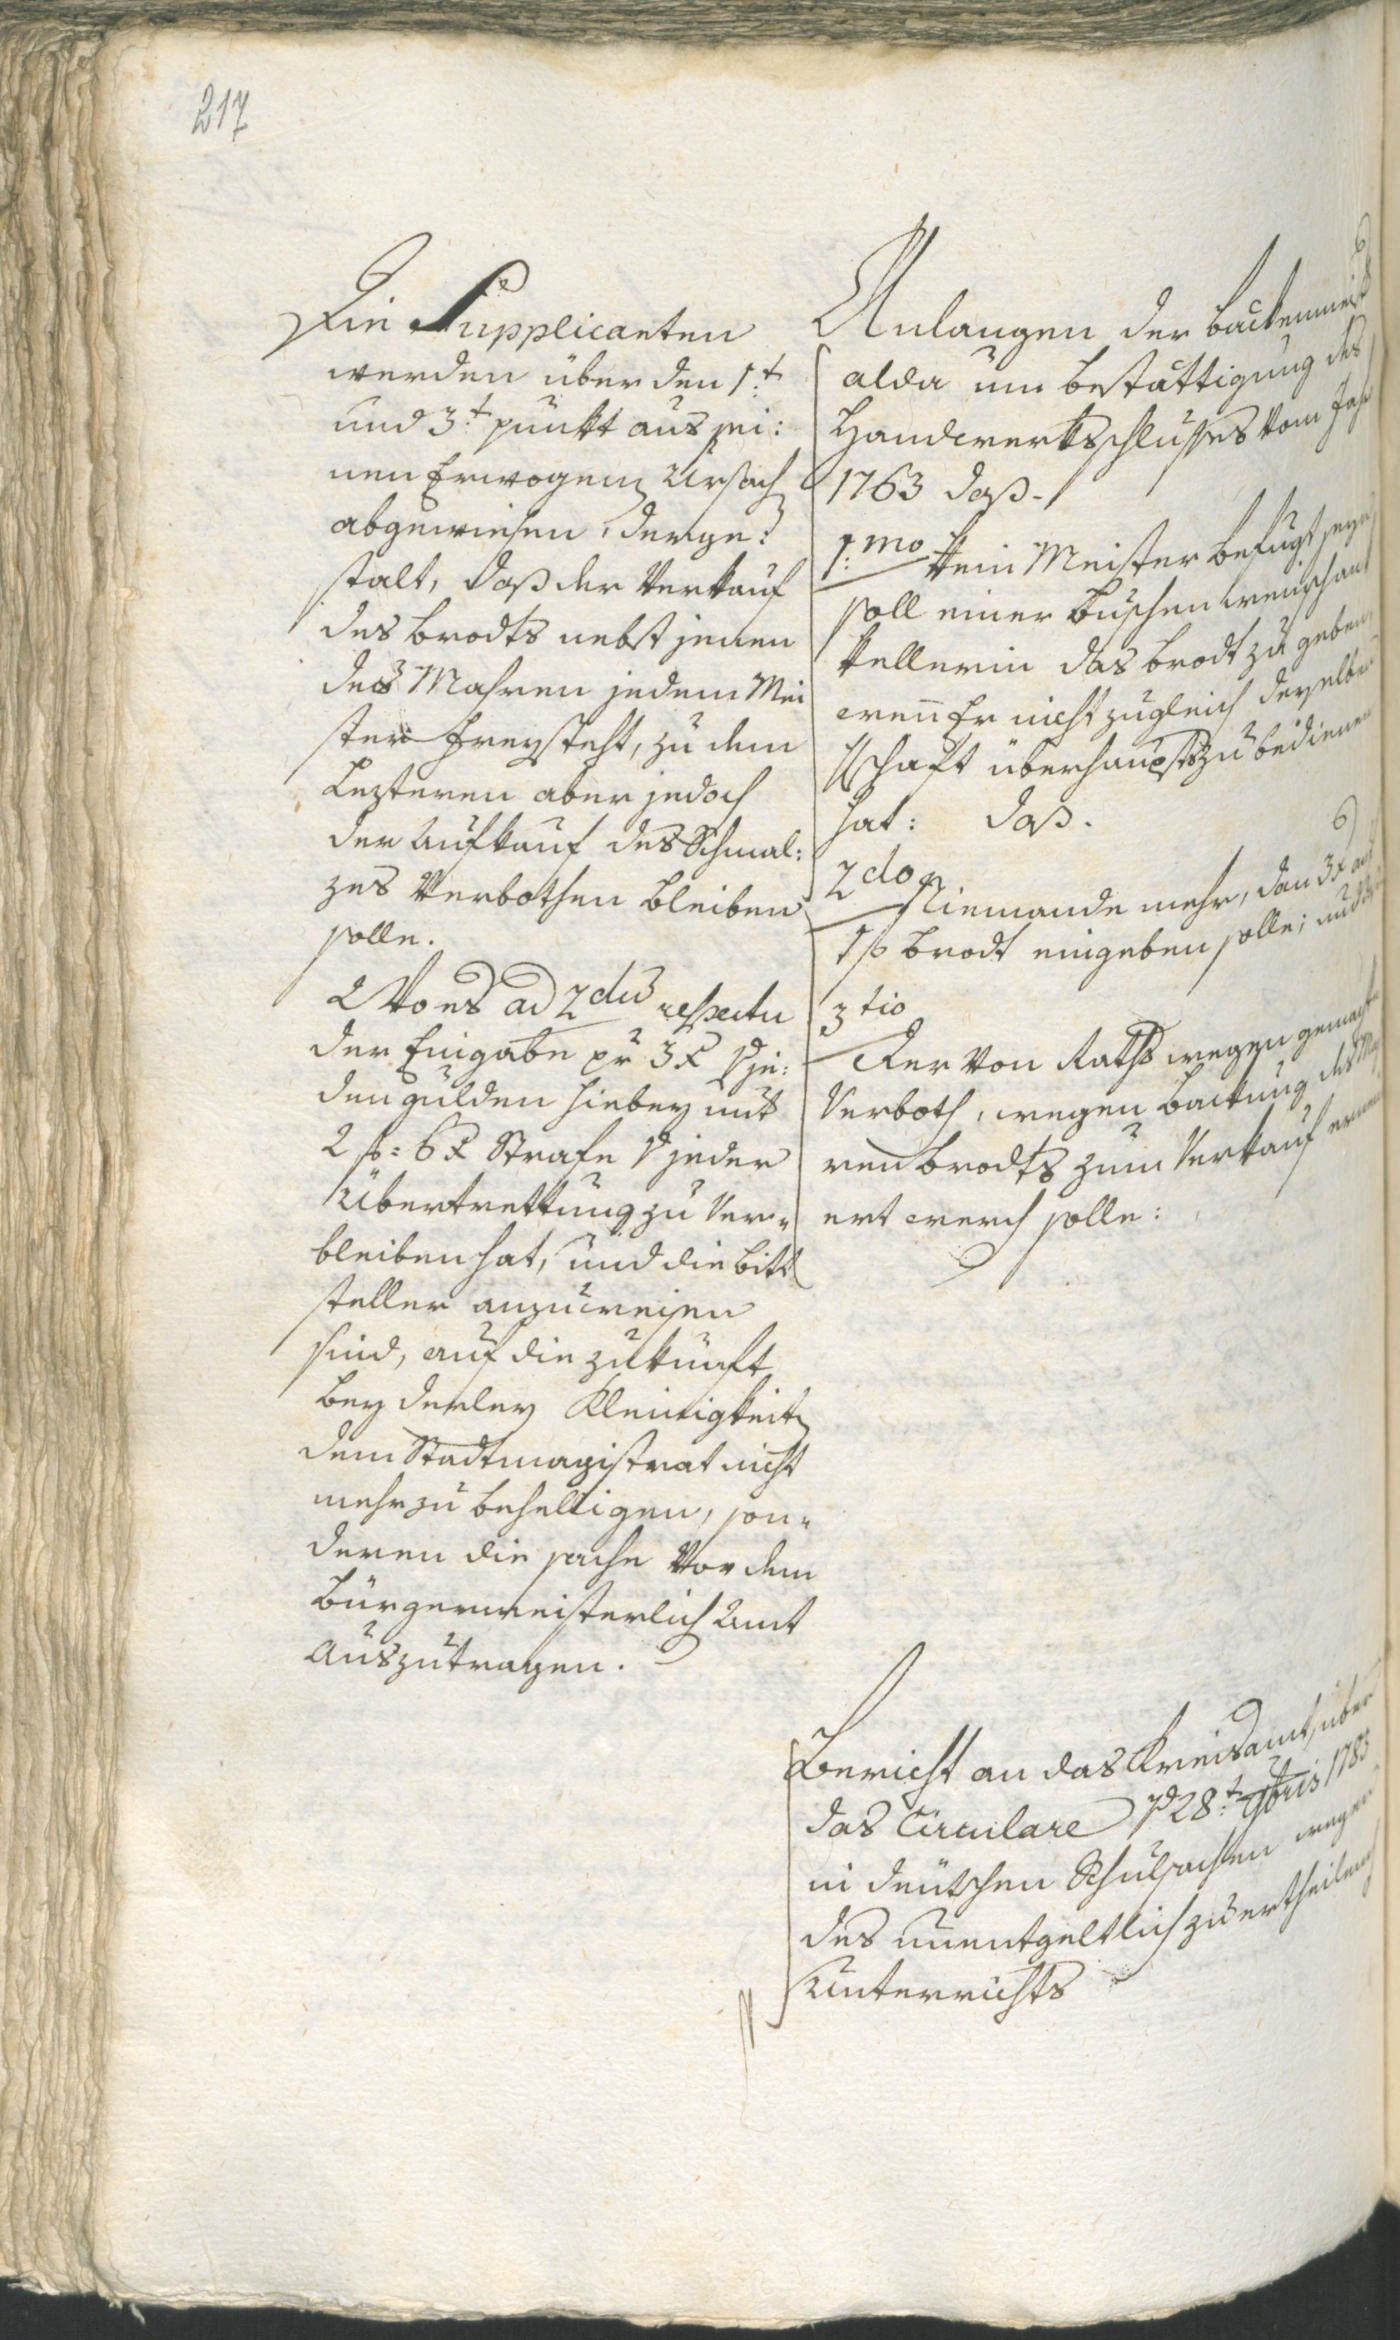 217
Die Supplicanten
werden über den 1.t
und 3.t punkt aus sei:
nen Erwogenen Ursach
abgewiesen, derge:
stalt, daß der Verkauf
des Brodts nebst jenen
des Mahren jedem Mei
ster freysteht, zu dem
Lezteren aber jedoch
der Aufkauf des Schmal:
zes Verbothen bleiben
solle.
Wo es ad 2dum respectu
der Eingabe pr 3 x
den gulden hiebey mit
2 f: 6 x Strafe jeder
Übertrettung zu Ver-
bleiben hat, und die Bitt
steller anzuweisen
sind, auf die zukunft
bey derley Kleinigkeiten
dem Stadtmagistrat nicht
mehr zu behelligen, son-
deren die sache Vor dem
Bürgermeisterlich Amt
auszutragen.
Anlangen der Backenmeist
alda um bestättigung des
Handwerksschlusses Vom Jahr
1763 daß.
1.mo Kein Meister befugt seyn
soll einer Buschen weinschank
kellerin das Brodt zu geben
wenn Er nicht zugleich derselben
schaft überhaupts zu bedienen
hat: daß.
2do Niemande mehr, dan 3 x auf
1 f Brodt eingeben solle; und
3tio
Der Von Raths wegen gemachte
Verboth, wegen Backung des Mah
ren Brodts zum Verkauf
ert werd solle:
Bericht an das Kreisamt, über
das Circulare 28.t 9bris 1785
in deutschen Schulsachen wegen
des unentgeltlich zu ertheilend
Unterrichts